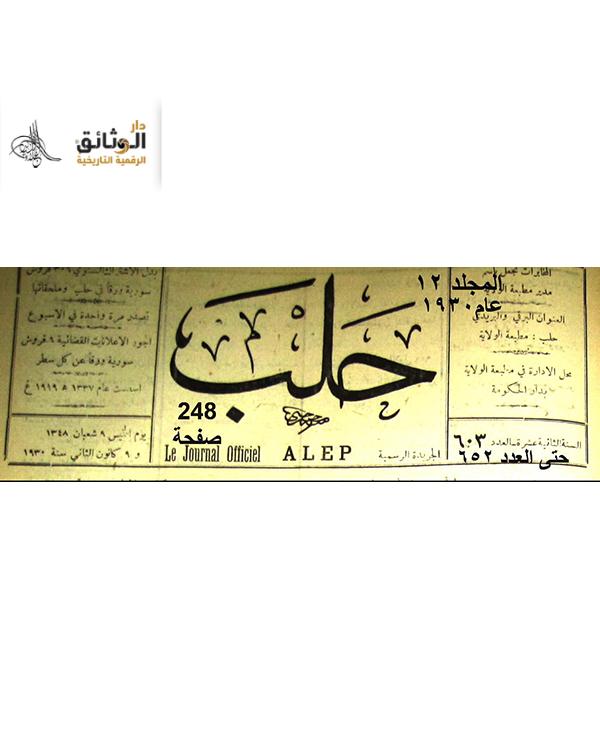 دار
الوثائق
الرقمية التاريخية
المخابرات تجعل باسم
مدير مطبعة الولاية
المجلد ١٢
عام ١٩٣٠
العنوان البرقي والبريدي
حلب : مطبعة الولاية
محل الادارة في مطبعة الولاية
بدار الحكومة
السنة الثانية عشرة ـ العدد ٦٠٣
حتى العدد ٦٥٢
حلب
248
صفحة
Le Journal Officiel ALEP الجريدة الرسمية
بدل الاشتراك السنوي ٣٠٠ قروش
سورية ورقاً في حلب وملحقاتها
تصدر مرة واحدة في الاسبوع
اجور الاعلانات القضائية ٩ قروش
سورية ورقاً عن كل سطر
اسست عام ١٣٣٧ ه ١٩١٩ غ
يوم الخميس ٩ شعبان ١٣٤٨
و ٩ كانون الثاني سنة ١٩٣٠